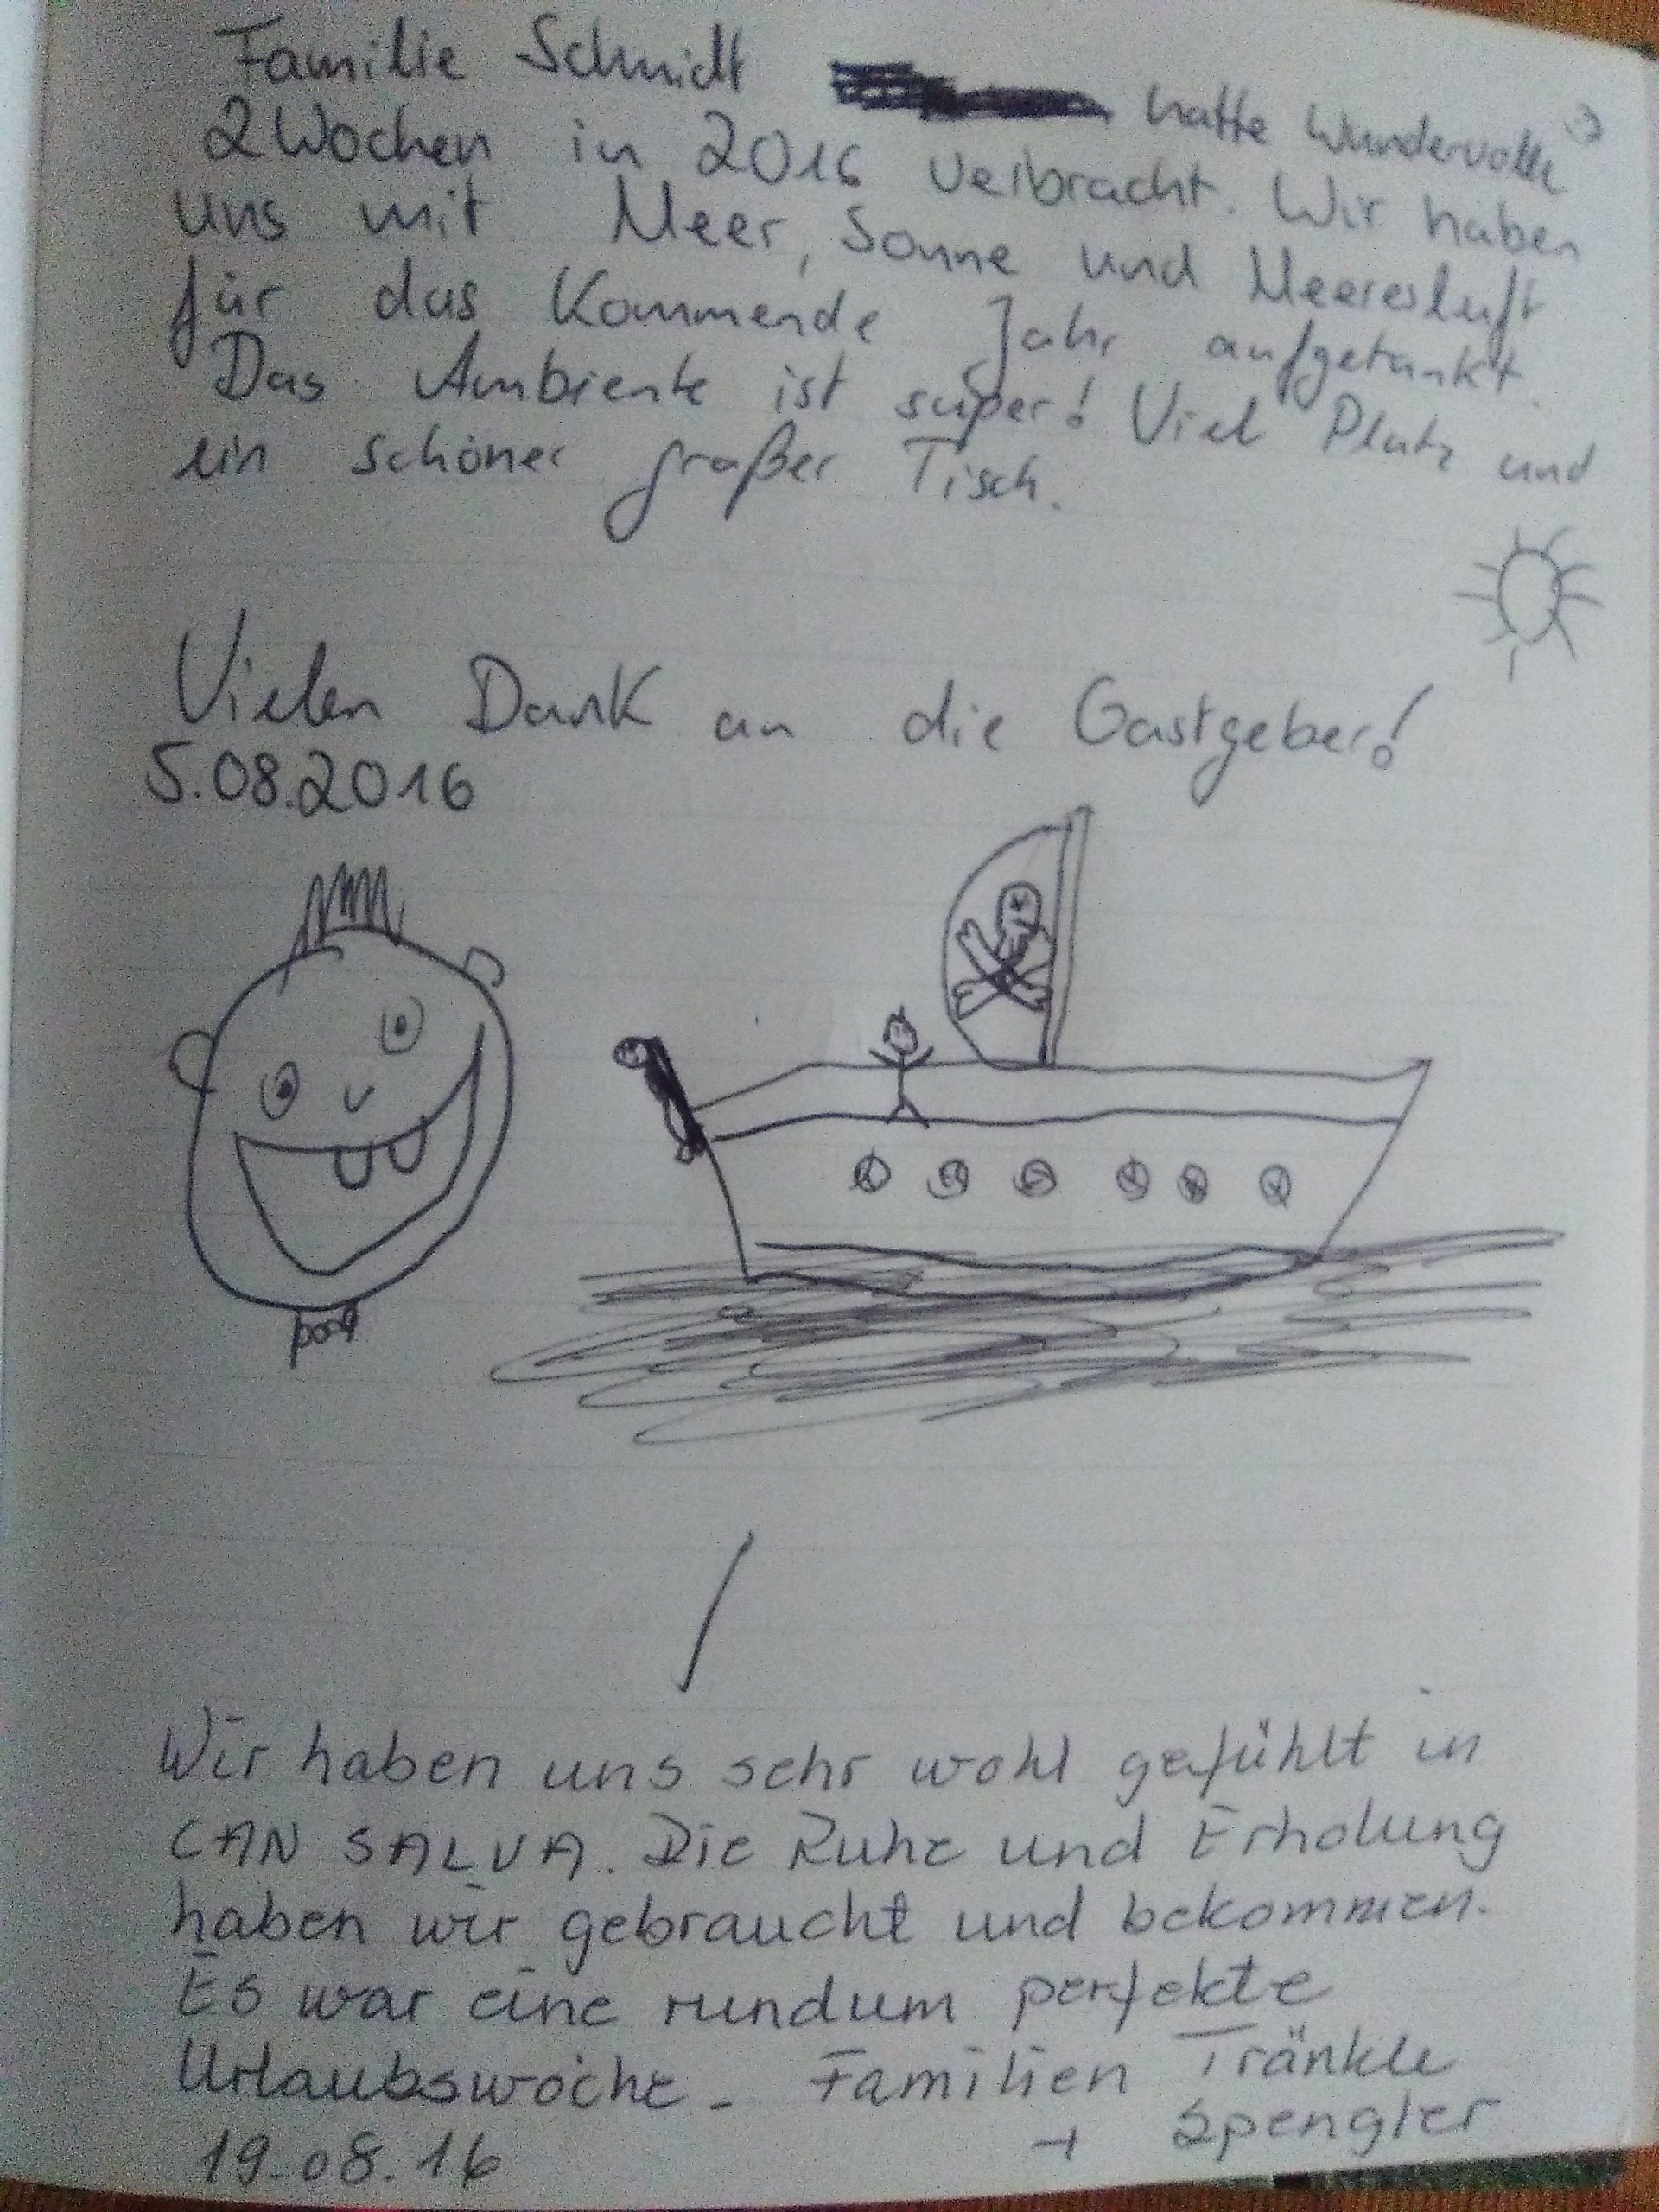 Familie Schmidt hatte wundervolle
2 Wochen in 2016 verbracht. Wir haben
uns mit Meer, Sonne und Meeresluft
für das Kommende Jahr aufgetankt.
Das Ambiente ist super! Viel Platz und
ein schöner großer Tisch.
Vielen Dank an die Gastgeber!
5.08.2016
Wir haben uns sehr wohl gefühlt in
CAN SALVA. Die Ruhe und Erholung
haben wir gebraucht und bekommen.
Es war eine rundum perfekte
Urlaubswoche. Familien Tränkle
+ Spengler
19.08.16